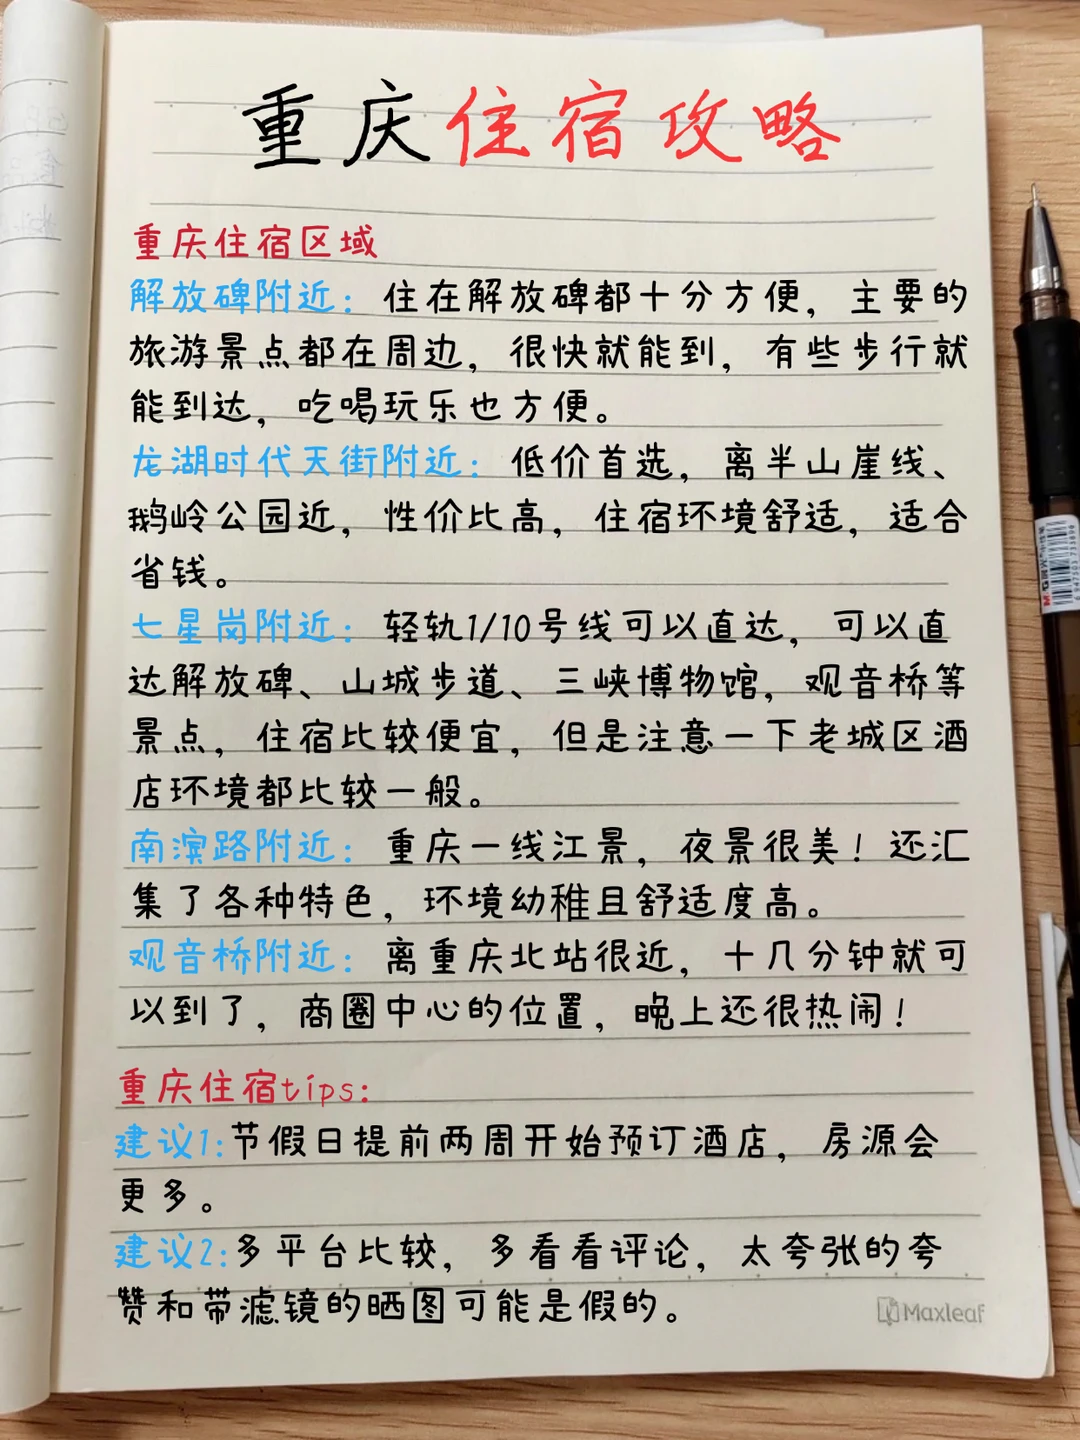 重庆住宿攻略
重庆住宿区域
解放碑附近：住在解放碑都十分方便，主要的
旅游景点都在周边，很快就能到，有些步行就
能到达，吃喝玩乐也方便。
龙湖时代天街附近：低价首选，离半山崖线、
鹅岭公园近，性价比高，住宿环境舒适，适合
省钱。
七星岗附近：轻轨1/10号线可以直达，可以直
达解放碑、山城步道、三峡博物馆，观音桥等
景点，住宿比较便宜，但是注意一下老城区酒
店环境都比较一般。
南滨路附近：重庆一线江景，夜景很美！还汇
集了各种特色，环境幼稚且舒适度高。
观音桥附近：离重庆北站很近，十几分钟就可
以到了，商圈中心的位置，晚上还很热闹！
重庆住宿tips:
建议1:节假日提前两周开始预订酒店，房源会
更多。
建议2:多平台比较，多看看评论，太夸张的夸
赞和带滤镜的晒图可能是假的。
Maxleaf
M&G